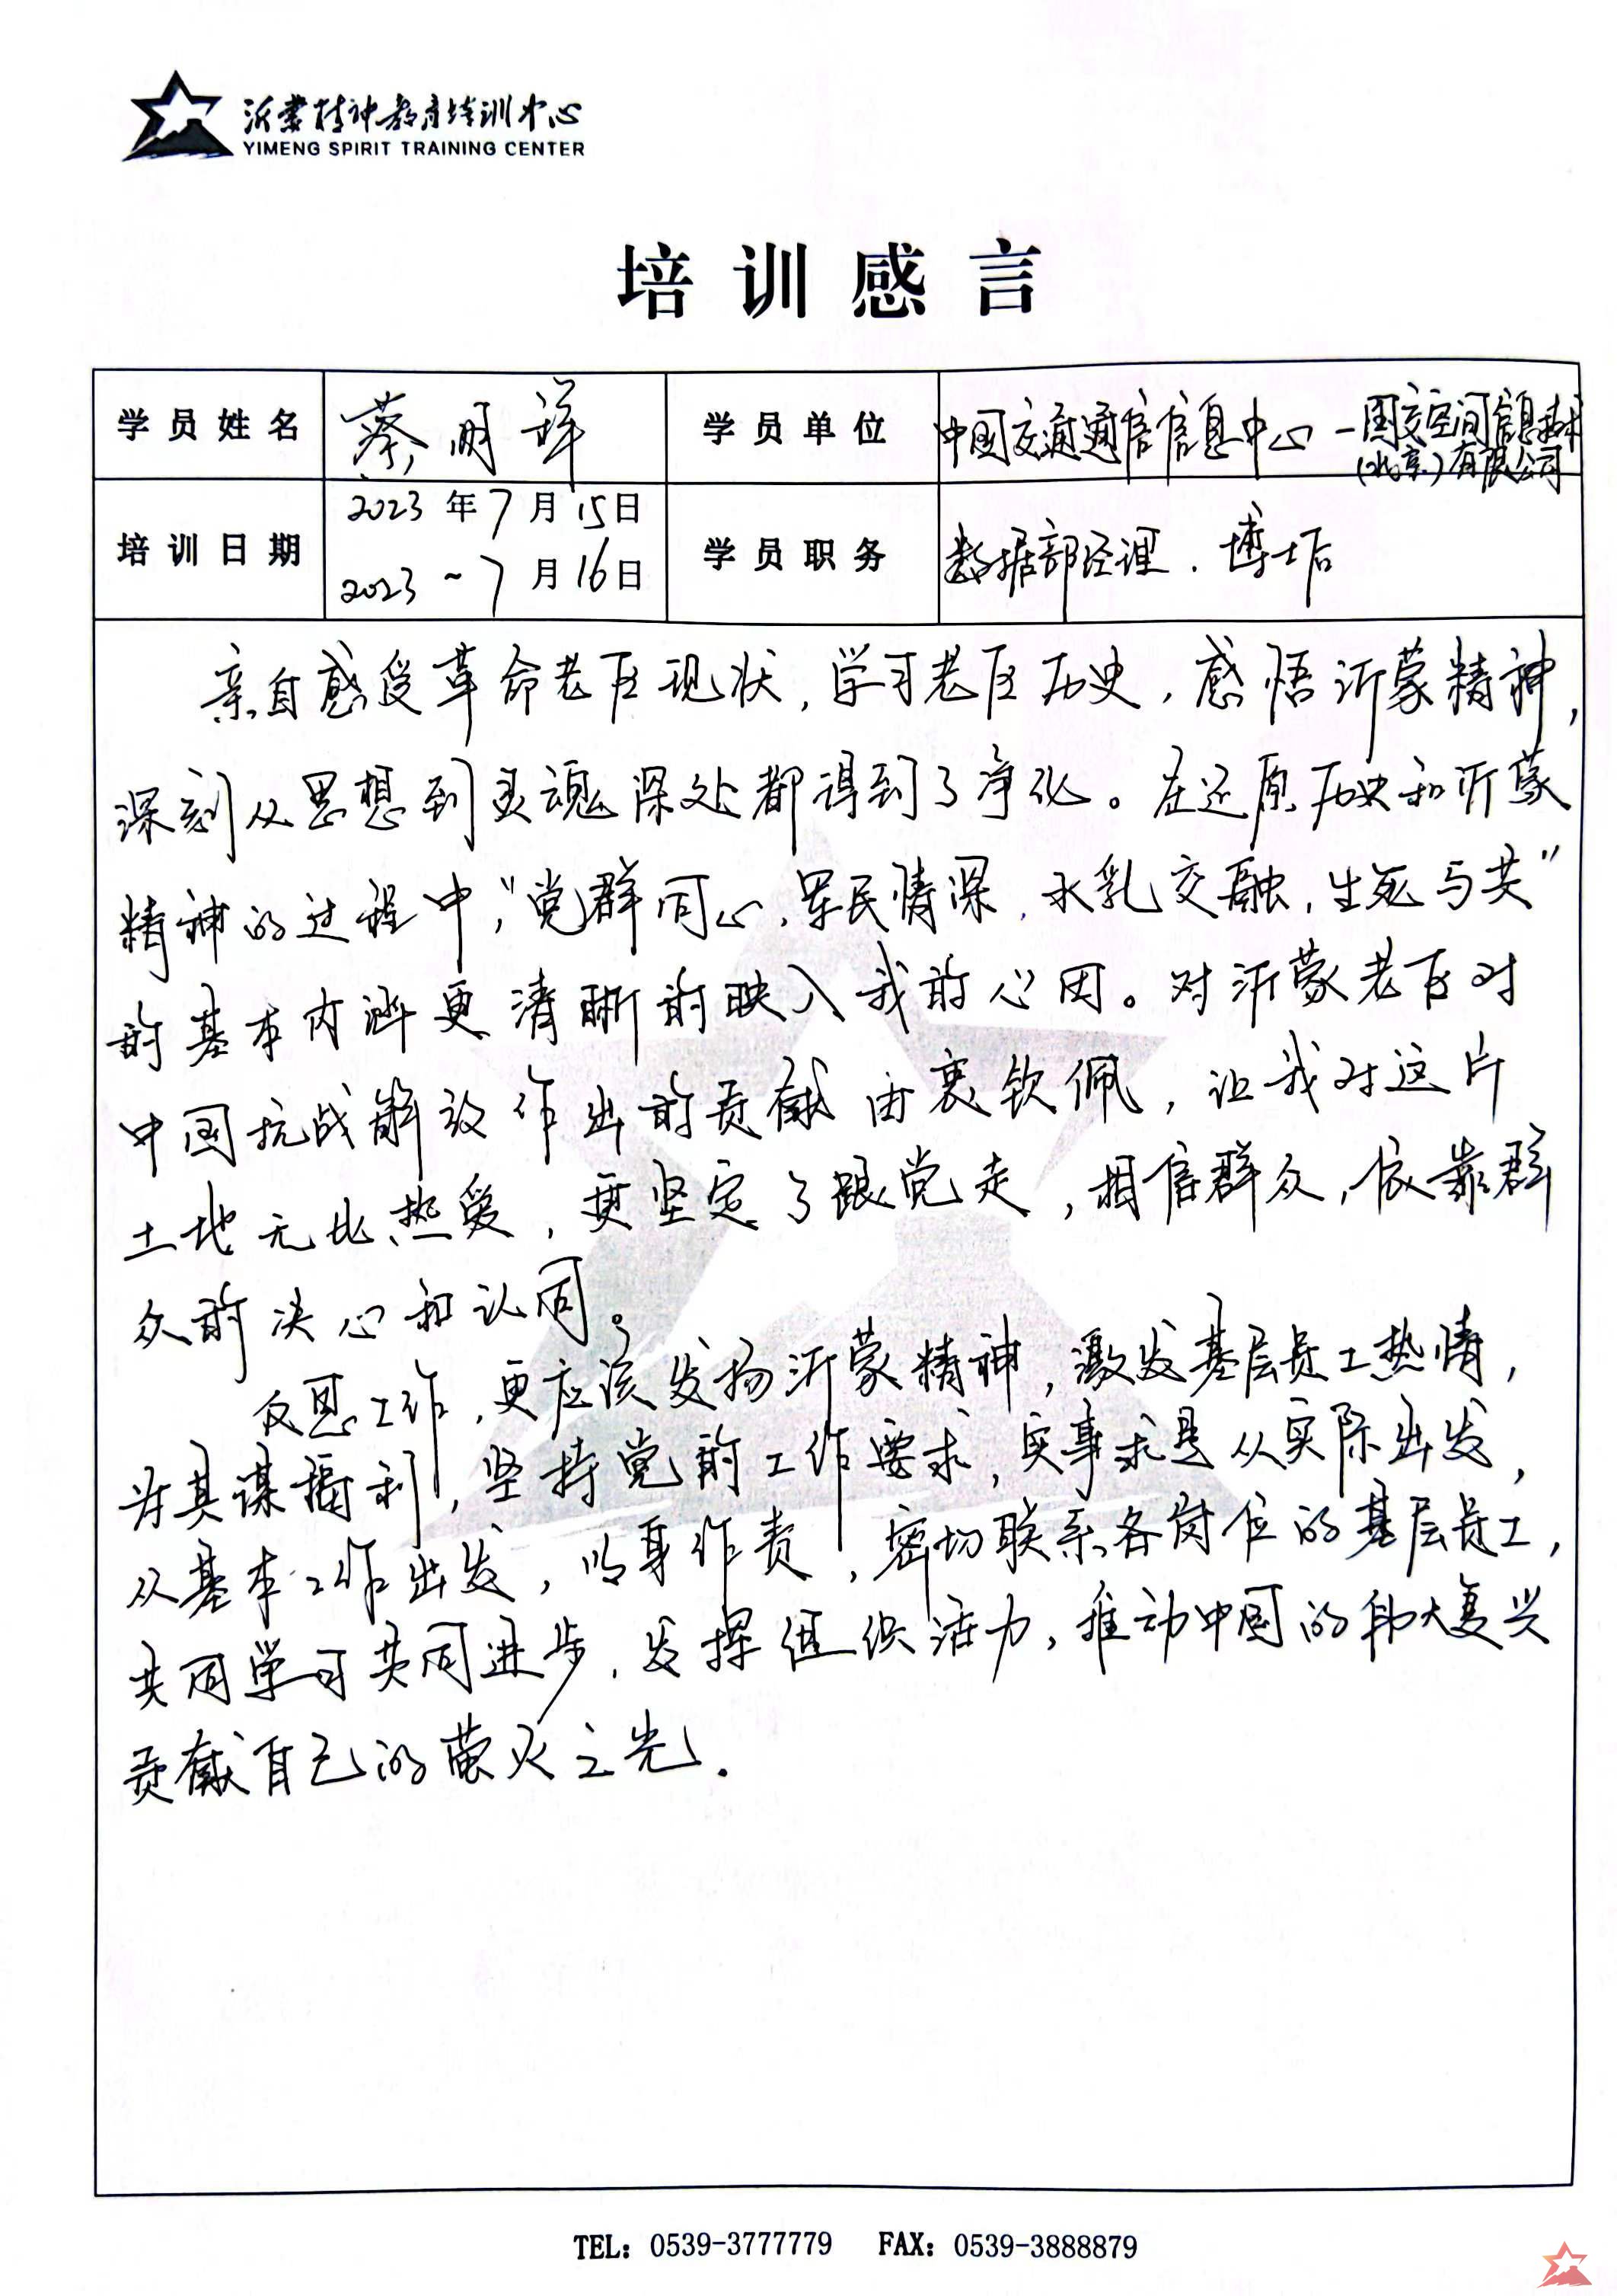 沂蒙精神教育培训中心
YIMENG SPIRIT TRAINING CENTER
培训感言
学员姓名 蔡明祥 学员单位 中国交通通信信息中心-国交空间信息技术(北京)有限公司
培训日期 2023年7月15日 2023~7月16日 学员职务 数据部经理.博士后
亲自感受革命老区现状,学习老区历史,感悟沂蒙精神,
深刻从思想到灵魂深处都得到了净化。在还原历史和沂蒙
精神的过程中,"党群同心,军民情深,水乳交融,生死与共"
的基本内涵更清晰的映入我的心田。对沂蒙老区对
中国抗战解放作出的贡献由衷钦佩,让我对这片
土地无比热爱,更坚定了跟党走,相信群众,依靠群
众的决心和认同。
反思工作,更应该发扬沂蒙精神,激发基层员工热情,
为其谋福利,坚持党的工作要求,实事求是从实际出发,
从基本工作出发,以身作责,密切联系各岗位的基层员工,
共同学习共同进步,发挥组织活力,推动中国的伟大复兴
贡献自己的萤火之光.
TEL: 0539-3777779 FAX: 0539-3888879